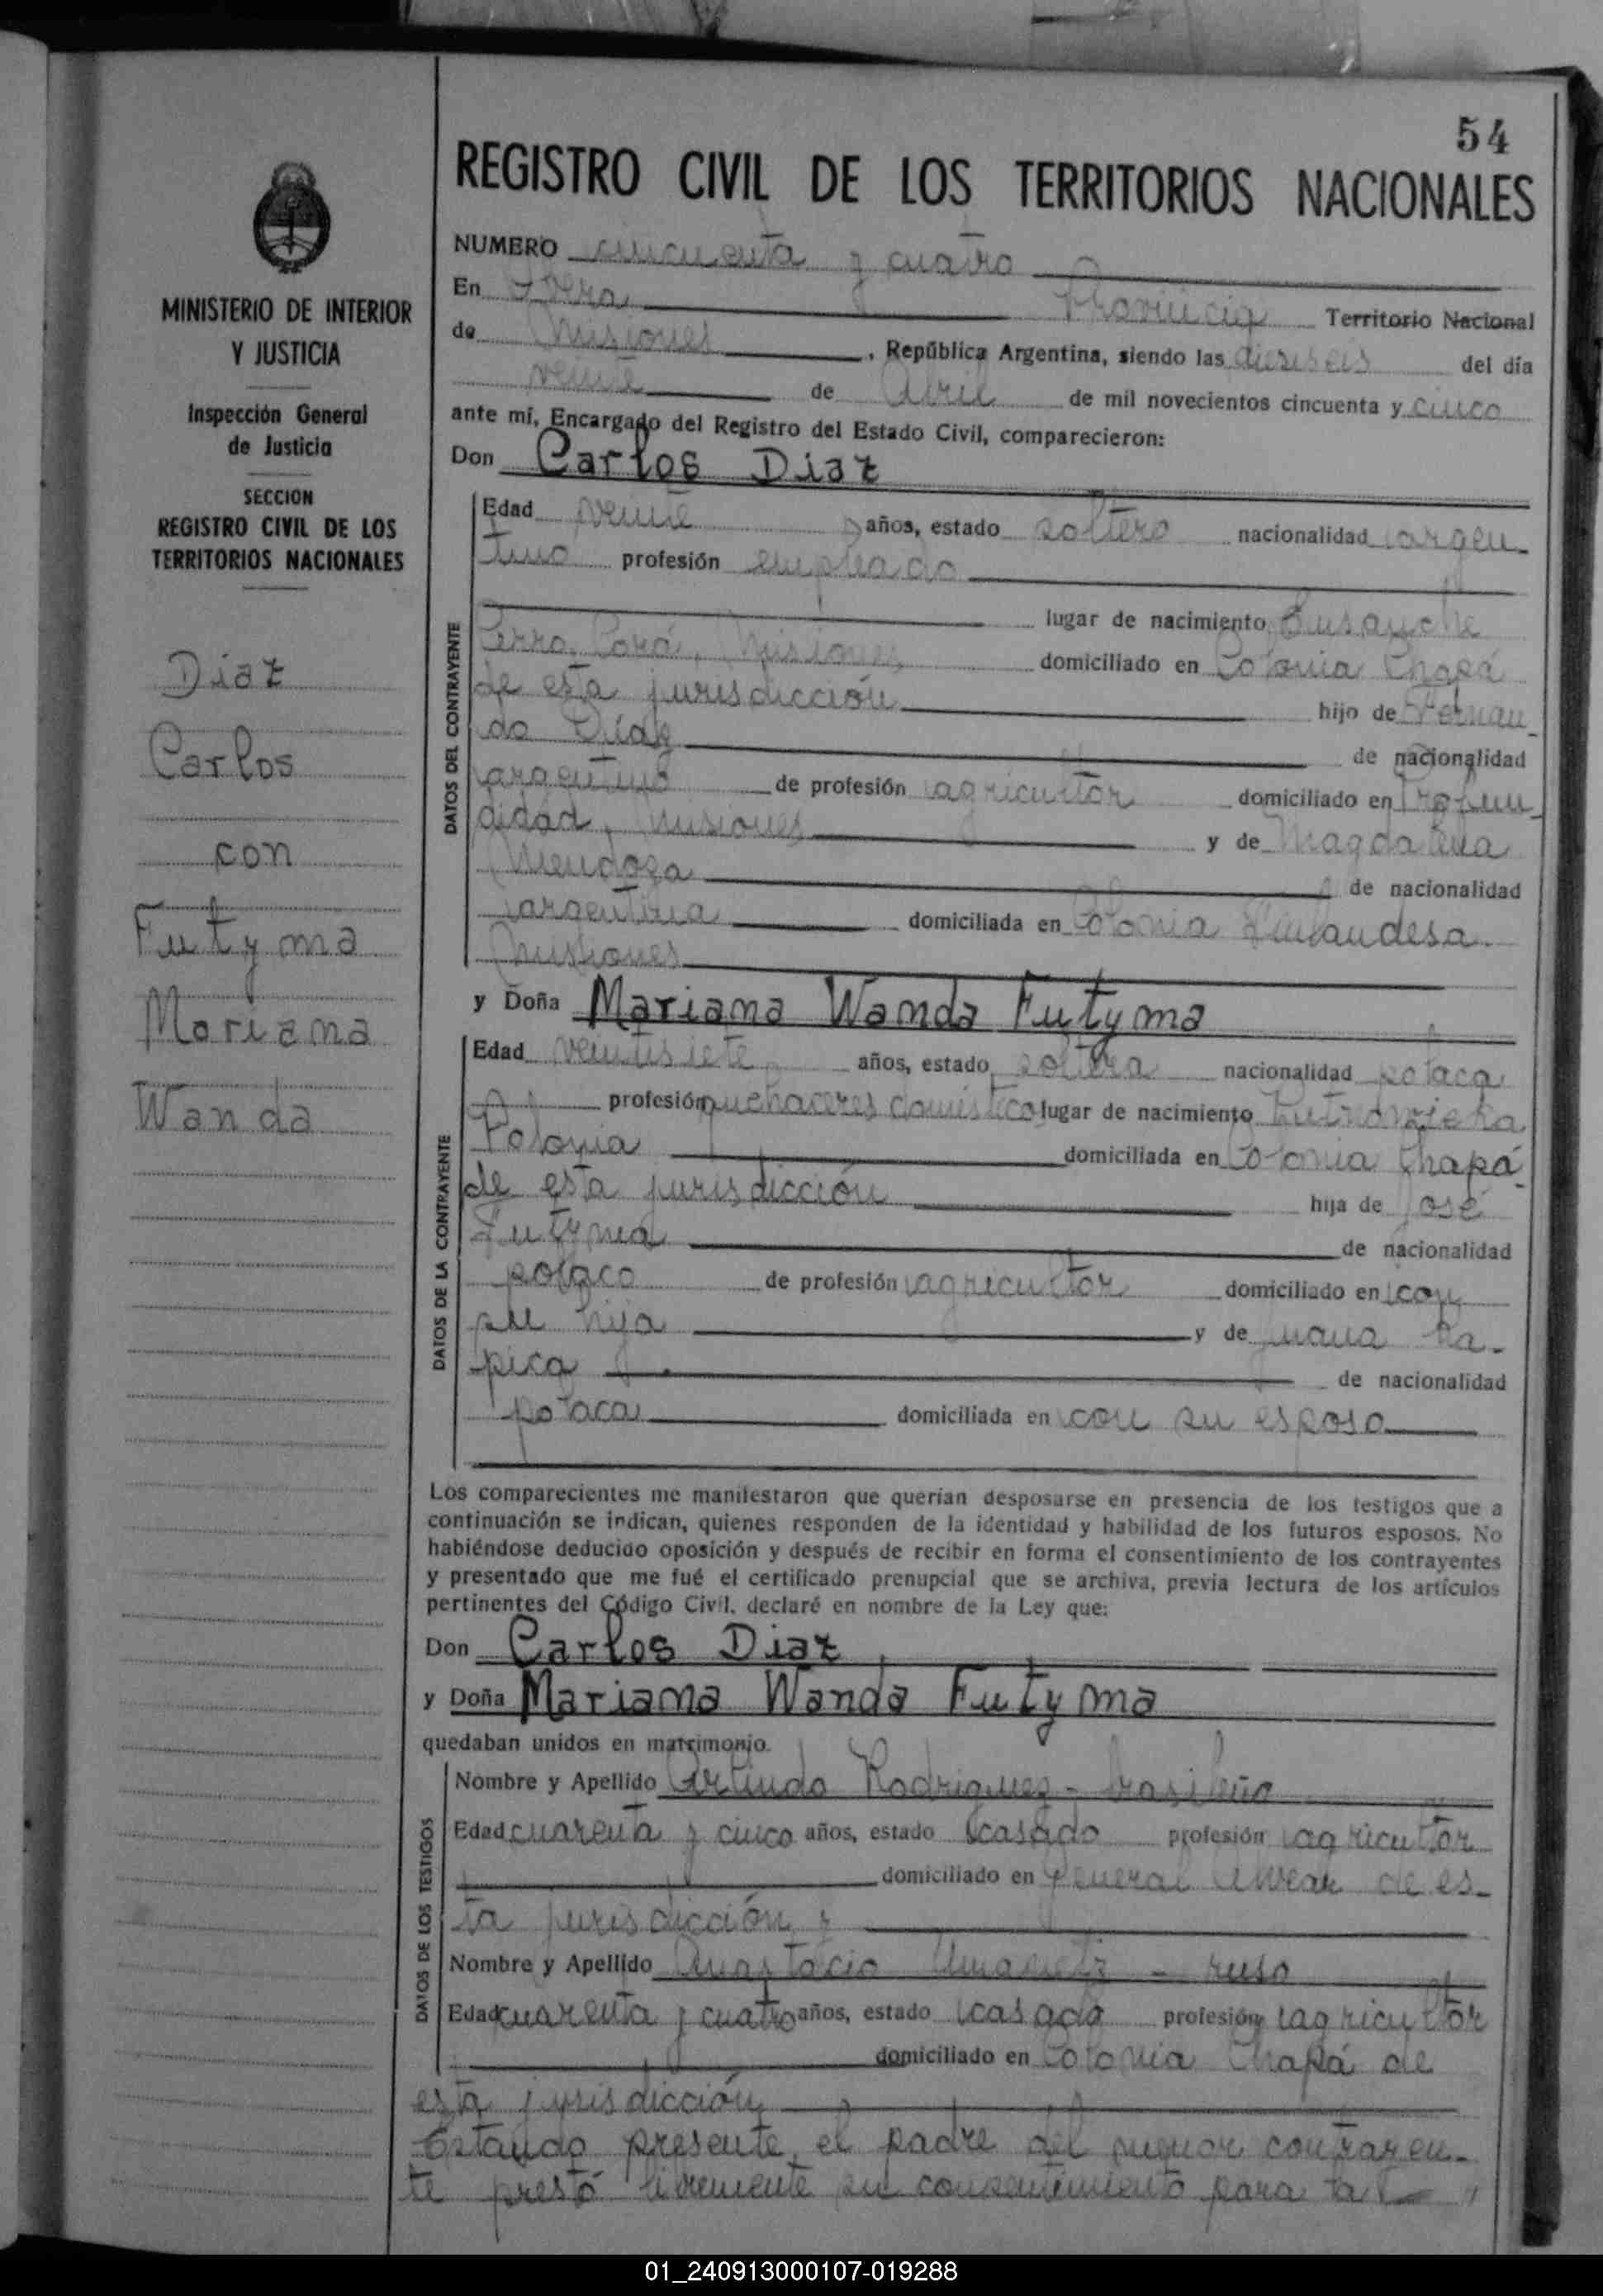 54
REGISTRO CIVIL DE LOS TERRITORIOS NACIONALES
MINISTERIO DE INTERIOR
Y JUSTICIA
Inspección General
de Justicia
SECCION
REGISTRO CIVIL DE LOS
TERRITORIOS NACIONALES
Diaz
Carlos
con
Futyma
Mariana
Wanda
NUMERO cincuenta y cuatro
En Provincia Territorio Nacional
de Misiones, República Argentina, siendo las dieseseis del día
veinte de Abril de mil novecientos cincuenta y cinco
ante mí, Encargado del Registro del Estado Civil, comparecieron:
Don Carlos Diaz
DATOS DEL CONTRAYENTE
Edad veinte años, estado soltero nacionalidad argen-
tino profesión empleado
lugar de nacimiento Ensanche
Cerro Corá, Misiones domiciliado en Colonia Chapá
de esta jurisdicción hijo de Fernan-
do Díaz de nacionalidad
argentino de profesión agricultor domiciliado en Profun-
didad, Misiones y de Magdalena
Mendoza de nacionalidad
argentina domiciliada en Colonia Finlandesa
Misiones
y Doña Mariana Wanda Futyma
DATOS DE LA CONTRAYENTE
Edad veintisiete años, estado soltera nacionalidad polaca
profesión quehaceres domésticos lugar de nacimiento
Polonia domiciliada en Colonia Chapá
de esta jurisdicción hija de José
Futyma de nacionalidad
polaco de profesión agricultor domiciliado en con
su hija y de Juana
de nacionalidad
polaca domiciliada en con su esposo
Los comparecientes me manifestaron que querían desposarse en presencia de los testigos que a
continuación se indican, quienes responden de la identidad y habilidad de los futuros esposos. No
habiéndose deducido oposición y después de recibir en forma el consentimiento de los contrayentes
y presentado que me fué el certificado prenupcial que se archiva, previa lectura de los artículos
pertinentes del Código Civil, declaré en nombre de la Ley que:
Don Carlos Diaz
y Doña Mariana Wanda Futyma
quedaban unidos en matrimonio.
DATOS DE LOS TESTIGOS
Nombre y Apellido Arlindo Rodriguez - brasileño
Edad cuarenta y cinco años, estado casado profesión agricultor
domiciliado en General Alvear de es-
ta jurisdicción y
Nombre y Apellido Anastacio - ruso
Edad cuarenta y cuatro años, estado casado profesión agricultor
domiciliado en Colonia Chapá de
esta jurisdicción
Estando presente el padre del menor contrayen-
te prestó libremente su consentimiento para tal
01_240913000107-019288